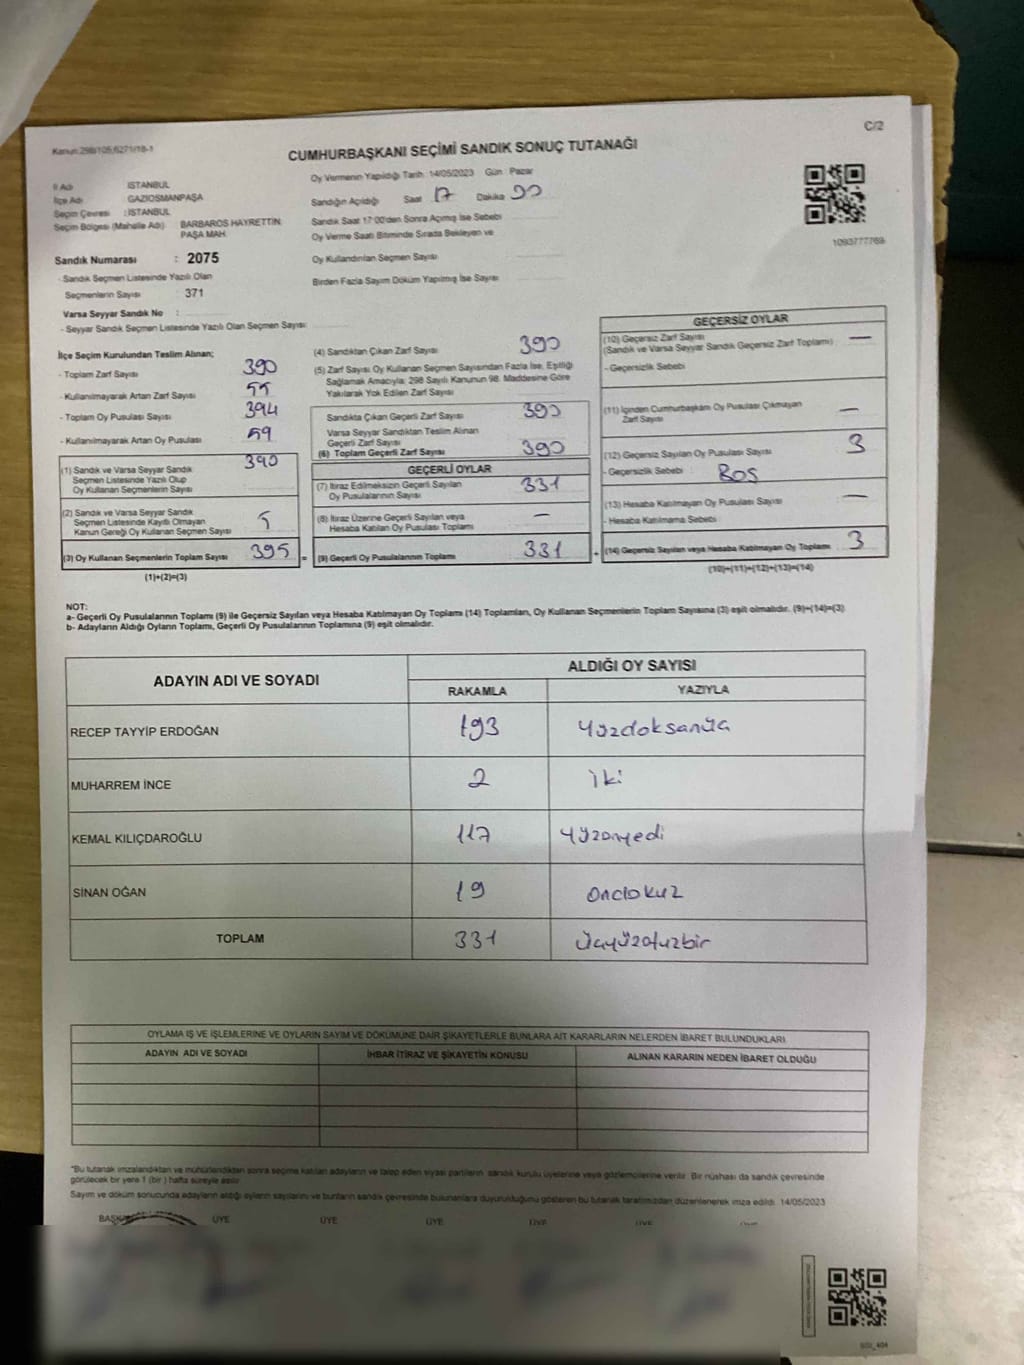 Kanun:298/105,6271/18-1
C/2
CUMHURBAŞKANI SEÇİMİ SANDIK SONUÇ TUTANAĞI
İl Adı İSTANBUL
İlçe Adı GAZİOSMANPAŞA
Seçim Çevresi : İSTANBUL
Seçim Bölgesi (Mahalle Adı) BARBAROS HAYRETTİN
PAŞA MAH.
Sandık Numarası : 2075
- Sandık Seçmen Listesinde Yazılı Olan
Seçmenlerin Sayısı : 371
Varsa Seyyar Sandık No :
- Seyyar Sandık Seçmen Listesinde Yazılı Olan Seçmen Sayısı
Oy Vermenin Yapıldığı Tarih :14/05/2023 Gün : Pazar
Sandığın Açıldığı Saat 17 Dakika 00
Sandık Saat 17:00'den Sonra Açılmış İse Sebebi
Oy Verme Saati Bitiminde Sırada Bekleyen ve
Oy Kullandırılan Seçmen Sayısı
Birden Fazla Sayım Döküm Yapılmış İse Sayısı
1093777769
İlçe Seçim Kurulundan Teslim Alınan;
- Toplam Zarf Sayısı 390
- Kullanılmayarak Artan Zarf Sayısı 55
- Toplam Oy Pusulası Sayısı 394
- Kullanılmayarak Artan Oy Pusulası 59
(1) Sandık ve Varsa Seyyar Sandık 390
Seçmen Listesinde Yazılı Olup
Oy Kullanan Seçmenlerin Sayısı
(2) Sandık ve Varsa Seyyar Sandık
Seçmen Listesinde Kayıtlı Olmayan 5
Kanun Gereği Oy Kullanan Seçmen Sayısı
(3) Oy Kullanan Seçmenlerin Toplam Sayısı 395 =
(1)+(2)=(3)
(4) Sandıktan Çıkan Zarf Sayısı 390
(5) Zarf Sayısı Oy Kullanan Seçmen Sayısından Fazla İse, Eşitliği
Sağlamak Amacıyla, 298 Sayılı Kanunun 98. Maddesine Göre
Yakılarak Yok Edilen Zarf Sayısı
Sandıkta Çıkan Geçerli Zarf Sayısı 390
Varsa Seyyar Sandıktan Teslim Alınan
Geçerli Zarf Sayısı
(6) Toplam Geçerli Zarf Sayısı 390
GEÇERLİ OYLAR
(7) İtiraz Edilmeksizin Geçerli Sayılan 331
Oy Pusulalarının Sayısı
(8) İtiraz Üzerine Geçerli Sayılan veya —
Hesaba Katılan Oy Pusulası Toplamı
(9) Geçerli Oy Pusulalarının Toplamı 331 +
GEÇERSİZ OYLAR
(10) Geçersiz Zarf Sayısı —
(Sandık ve Varsa Seyyar Sandık Geçersiz Zarf Toplamı)
- Geçersizlik Sebebi
(11) İçinden Cumhurbaşkanı Oy Pusulası Çıkmayan —
Zarf Sayısı
(12) Geçersiz Sayılan Oy Pusulası Sayısı 3
- Geçersizlik Sebebi : BOŞ
(13) Hesaba Katılmayan Oy Pusulası Sayısı —
- Hesaba Katılmama Sebebi
(14) Geçersiz Sayılan veya Hesaba Katılmayan Oy Toplamı 3
(10)+(11)+(12)+(13)=(14)
NOT:
a- Geçerli Oy Pusulalarının Toplamı (9) ile Geçersiz Sayılan veya Hesaba Katılmayan Oy Toplamı (14) Toplamları, Oy Kullanan Seçmenlerin Toplam Sayısına (3) eşit olmalıdır. (9)+(14)=(3)
b- Adayların Aldığı Oyların Toplamı, Geçerli Oy Pusulalarının Toplamına (9) eşit olmalıdır.
ADAYIN ADI VE SOYADI
ALDIĞI OY SAYISI
RAKAMLA YAZIYLA
RECEP TAYYİP ERDOĞAN 193 yüzdoksanüç
MUHARREM İNCE 2 iki
KEMAL KILIÇDAROĞLU 117 yüzonyedi
SİNAN OĞAN 19 ondokuz
TOPLAM 331 üçyüzotuzbir
OYLAMA İŞ VE İŞLEMLERİNE VE OYLARIN SAYIM VE DÖKÜMÜNE DAİR ŞİKAYETLERLE BUNLARA AİT KARARLARIN NELERDEN İBARET BULUNDUKLARI
ADAYIN ADI VE SOYADI İHBAR İTİRAZ VE ŞİKAYETİN KONUSU ALINAN KARARIN NEDEN İBARET OLDUĞU
*Bu tutanak imzalandıktan ve mühürlendikten sonra seçime katılan adayların ve talep eden siyasi partilerin sandık kurulu üyelerine veya gözlemcilerine verilir. Bir nüshası da sandık çevresinde
görülecek bir yere 1 (bir) hafta süreyle asılır.
Sayım ve döküm sonucunda adayların aldığı oyların sayılarını ve bunların sandık çevresinde bulunanlara duyurulduğunu gösteren bu tutanak tarafımızdan düzenlenerek imza edildi. 14/05/2023
ÜYE ÜYE ÜYE ÜYE ÜYE